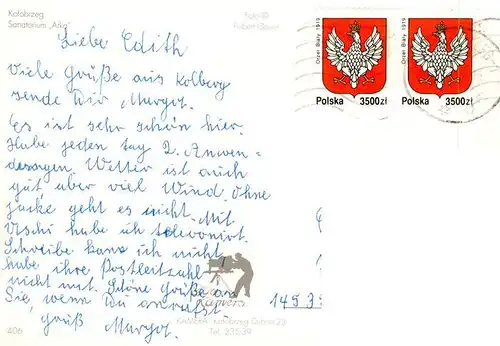 Kołobrzeg
Sanatorium „Arka"
Liebe Edith
Viele Grüße aus Kolberg
sende Dir Margot.
Es ist sehr schön hier.
Habe jeden Tag 2. Anwen-
dungen. Wetter ist auch
gut, aber viel Wind. Ohne
Jacke geht es nicht. Mit
Uschi habe ich telefoniert.
Schreibe kann ich nicht
habe ihre Postleitzahl
nicht mit. Schöne Grüße an
Sie, wenn Du anrufst.
Gruß Margot.
406
Orzeł Biały 1919
Polska 3500zł
Orzeł Biały 1919
Polska 3500zł
1453
Kołobrzeg
Tel. 235/39